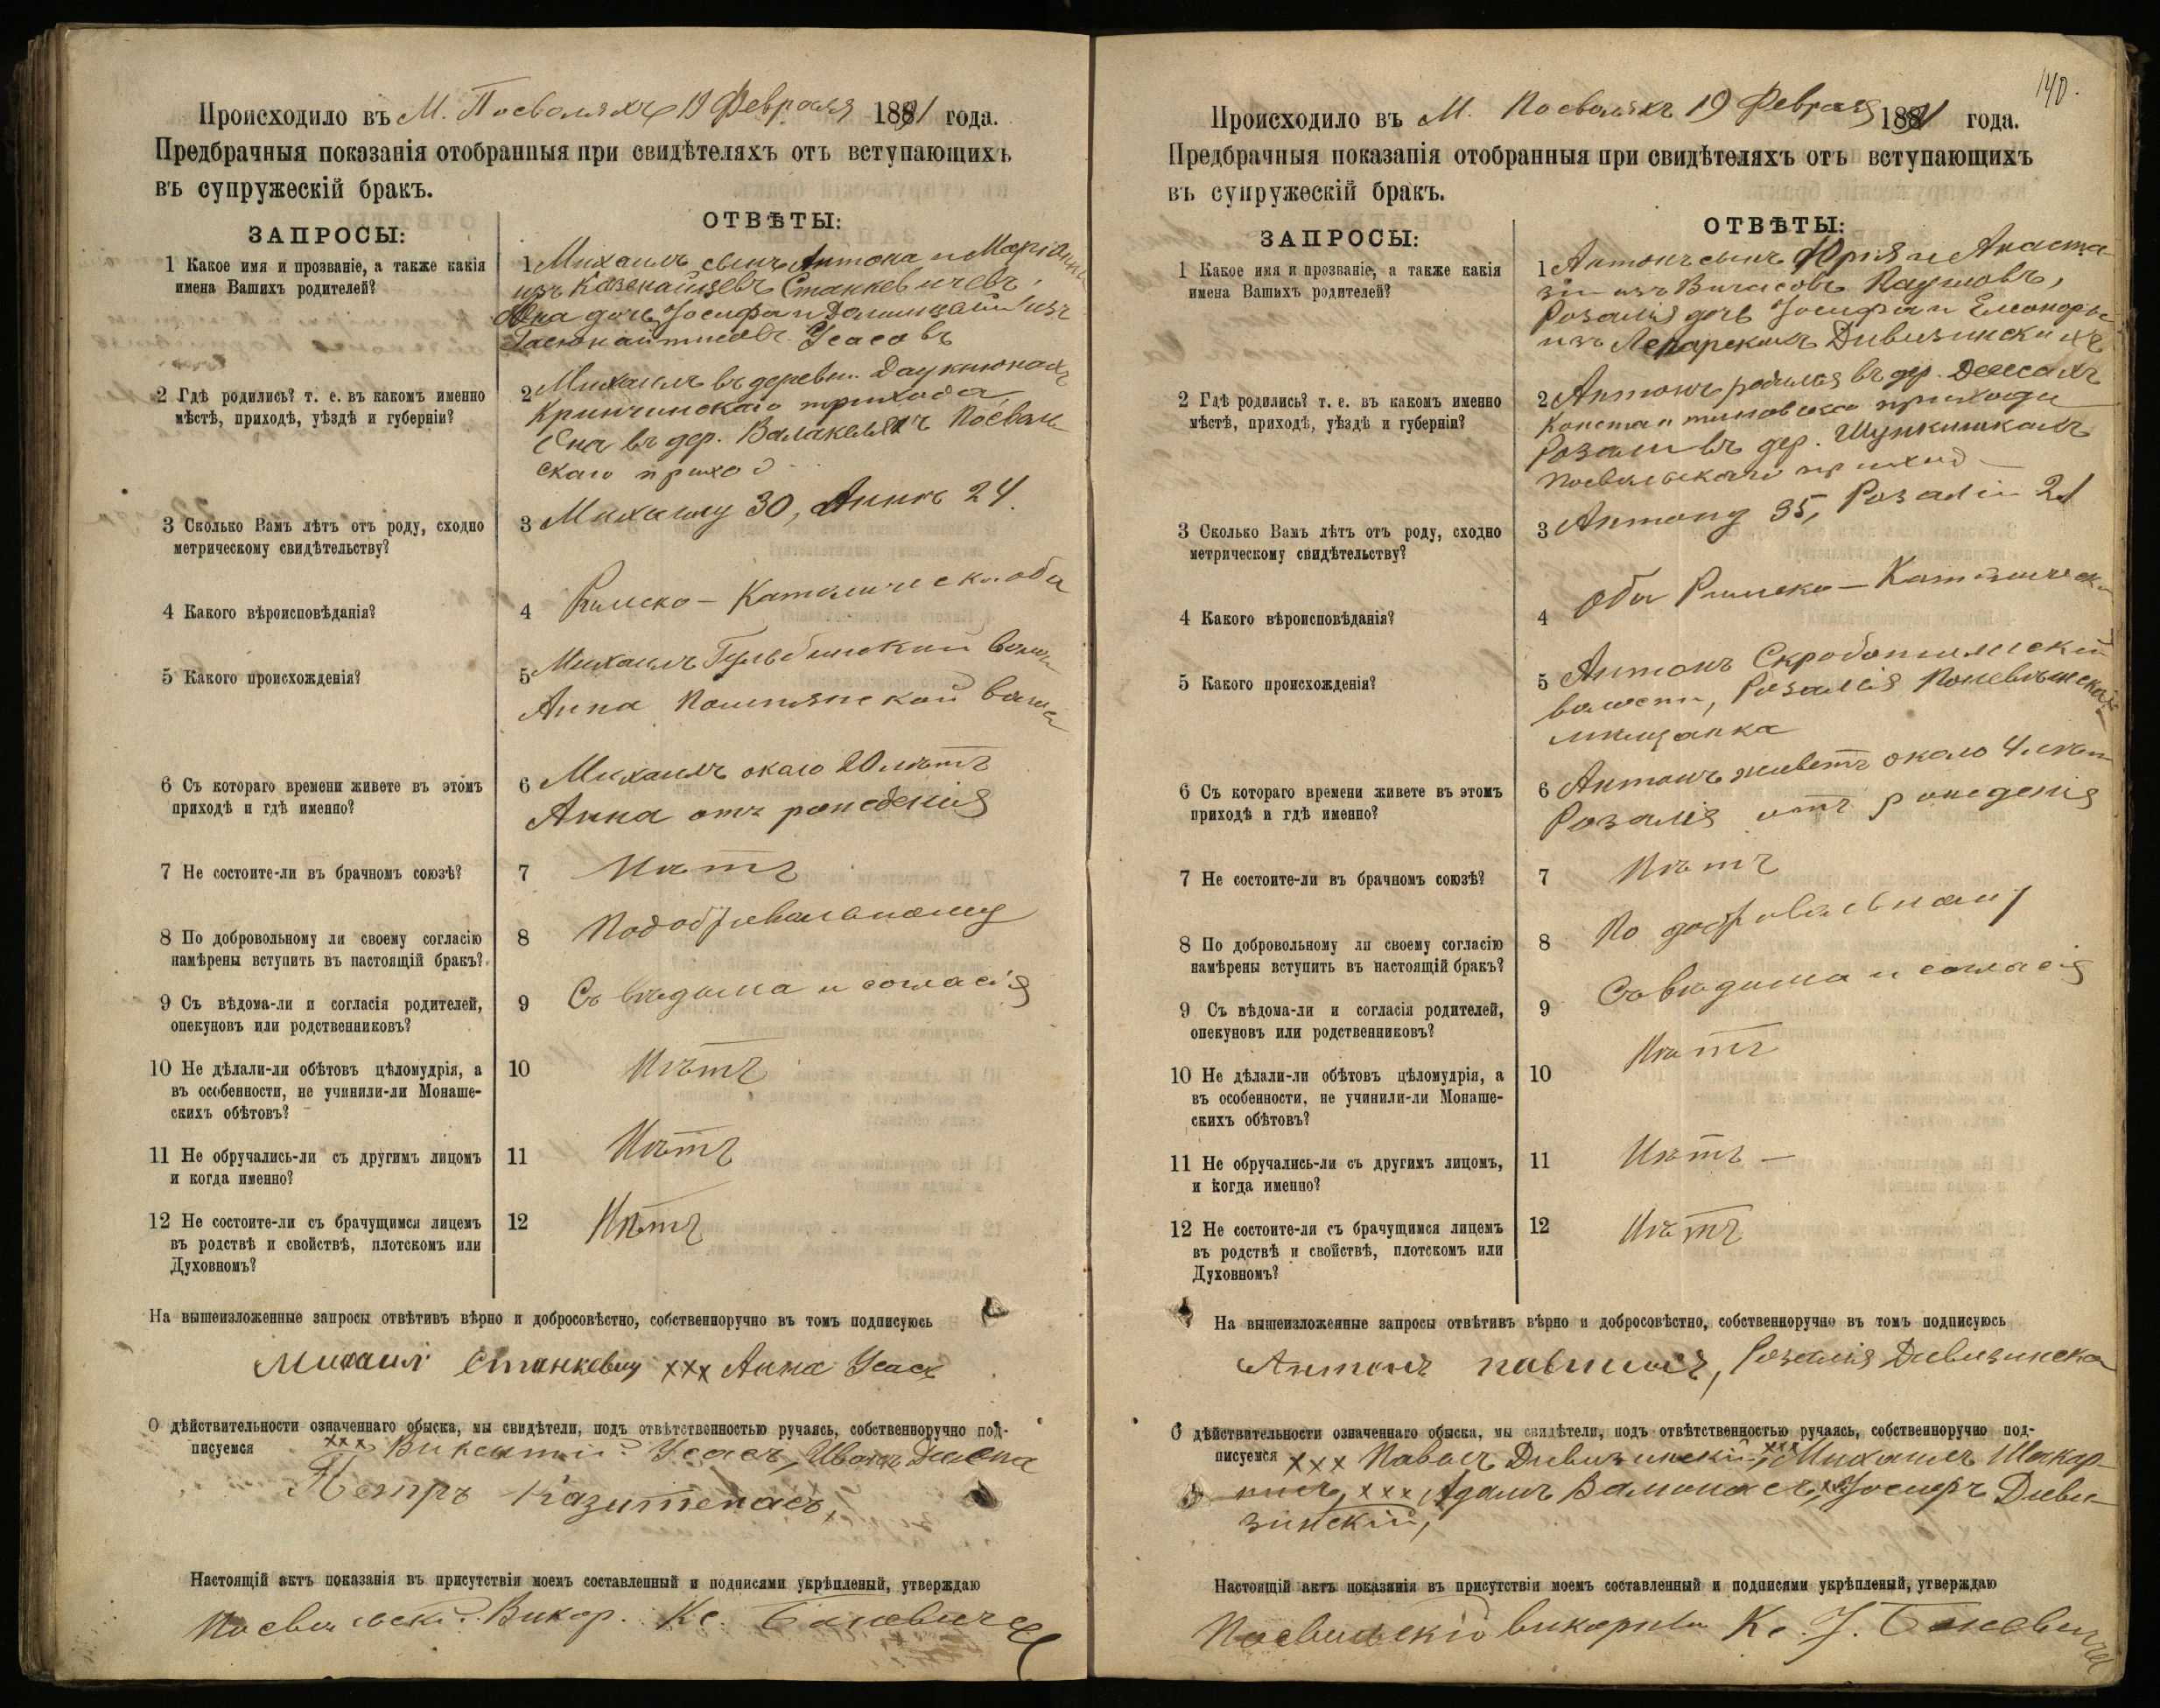 Происходило въ М. Посволяхъ 19 Февраля 1891 года.
Предбрачныя показанія отобранныя при свидѣтеляхъ отъ вступающихъ
въ супружескій бракъ.
ЗАПРОСЫ:
ОТВѢТЫ:
1 Какое имя и прозваніе, а также какія
имена Вашихъ родителей?
1 Михаилъ сынъ Антона и Маріанны
изъ Станкевичевъ,
дочь Іосифа и изъ
Усасовъ
2 Гдѣ родились? т. е. въ какомъ именно
мѣстѣ, приходѣ, уѣздѣ и губерніи?
2 Михаилъ въ деревни Даукнюнахъ
Кринчинскаго прихода
въ дер. Валакеляхъ Посволь-
скаго приход
3 Сколько Вамъ лѣтъ отъ роду, сходно
метрическому свидѣтельству?
3 Михаилу 30, Аннѣ 24.
4 Какого вѣроисповѣданія?
4 Римско-Католически оба
5 Какого происхожденія?
5 Михаилъ Гульбинской волости
Анна Помпянской
6 Съ котораго времени живете въ этомъ
приходѣ и гдѣ именно?
6 Михаилъ около 20 лѣтъ
Анна отъ рожденія
7 Не состоите-ли въ брачномъ союзѣ?
7 Нѣтъ
8 По добровольному ли своему согласію
намѣрены вступить въ настоящій бракъ?
8 По добровольному
9 Съ вѣдома-ли и согласія родителей,
опекуновъ или родственниковъ?
9 Съ вѣдома и согласія
10 Не дѣлали-ли обѣтовъ цѣломудрія, а
въ особенности, не учинили-ли Монаше-
скихъ обѣтовъ?
10 Нѣтъ
11 Не обручались-ли съ другимъ лицомъ
и когда именно?
11 Нѣтъ
12 Не состоите-ли съ брачущимся лицемъ
въ родствѣ и свойствѣ, плотскомъ или
Духовномъ?
12 Нѣтъ
На вышеизложенные запросы отвѣтивъ вѣрно и добросовѣстно, собственноручно въ томъ подписуюсь
Михаил Станкевич ххх Анна Усасъ
О дѣйствительности означеннаго обыска, мы свидѣтели, подъ отвѣтственностью ручаясь, собственноручно под-
писуемся ххх Викентій Усасъ, Иванъ
Петръ
Настоящій актъ показанія въ присутствіи моемъ составленный и подписями укрѣпленый, утверждаю
Посвольскій Викар. Кс.
140.
Происходило въ М. Посволяхъ 19 Февраля 1891 года.
Предбрачныя показанія отобранныя при свидѣтеляхъ отъ вступающихъ
въ супружескій бракъ.
ЗАПРОСЫ:
ОТВѢТЫ:
1 Какое имя и прозваніе, а также какія
имена Вашихъ родителей?
1 Антонъ сынъ Юрія и Анаста-
зіи изъ
Розалія дочь Іосифа и Елеоноры
изъ Дивизинскихъ
2 Гдѣ родились? т. е. въ какомъ именно
мѣстѣ, приходѣ, уѣздѣ и губерніи?
2 Антонъ родился въ дер.
Константиновскаго прихода
Розалія въ дер.
Посвольскаго приход
3 Сколько Вамъ лѣтъ отъ роду, сходно
метрическому свидѣтельству?
3 Антону 35, Розаліи 21
4 Какого вѣроисповѣданія?
4 Оба Римско-Католически
5 Какого происхожденія?
5 Антонъ Скробопишской
волости, Розалія Поневѣжская
мѣщанка
6 Съ котораго времени живете въ этомъ
приходѣ и гдѣ именно?
6 Антонъ живетъ около 4 лѣтъ
Розалія отъ рожденія
7 Не состоите-ли въ брачномъ союзѣ?
7 Нѣтъ
8 По добровольному ли своему согласію
намѣрены вступить въ настоящій бракъ?
8 По добровольному
9 Съ вѣдома-ли и согласія родителей,
опекуновъ или родственниковъ?
9 Съ вѣдома и согласія
10 Не дѣлали-ли обѣтовъ цѣломудрія, а
въ особенности, не учинили-ли Монаше-
скихъ обѣтовъ?
10 Нѣтъ
11 Не обручались-ли съ другимъ лицомъ,
и когда именно?
11 Нѣтъ —
12 Не состоите-ли съ брачущимся лицемъ
въ родствѣ и свойствѣ, плотскомъ или
Духовномъ?
12 Нѣтъ
На вышеизложенные запросы отвѣтивъ вѣрно и добросовѣстно, собственноручно въ томъ подписуюсь
Антонъ, Розалія Дивизинска
О дѣйствительности означеннаго обыска, мы свидѣтели, подъ отвѣтственностью ручаясь, собственноручно под-
писуемся ххх Павелъ Дивизинскій, ххх Михаилъ
ххх Адамъ Іосифъ Диви-
зинскій,
Настоящій актъ показанія въ присутствіи моемъ составленный и подписями укрѣпленый, утверждаю
Посвольскій викарный Кс. І.